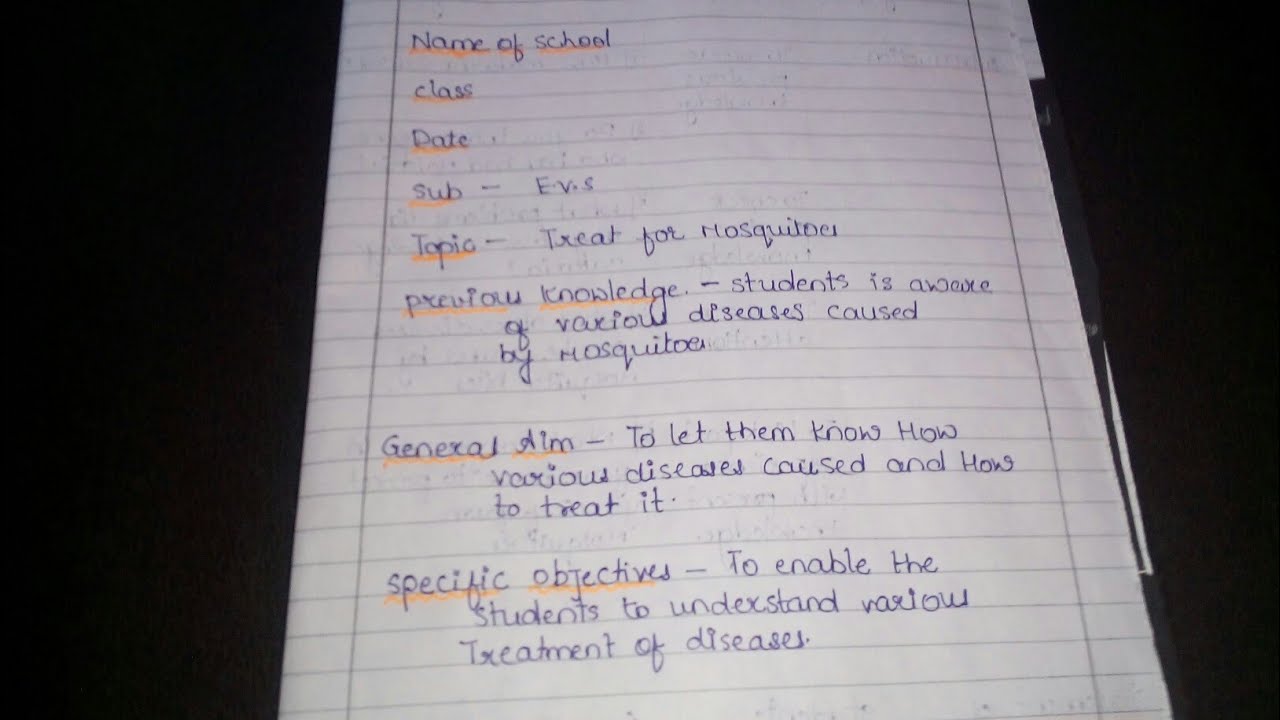 Name of school
class
Date
Sub - E.V.S
Topic - Treat for Mosquitoes
previous knowledge. - students is aware
of various diseases caused
by Mosquitoes
General Aim - To let them know How
various diseases caused and How
to treat it.
specific objectives - To enable the
students to understand various
Treatment of diseases.